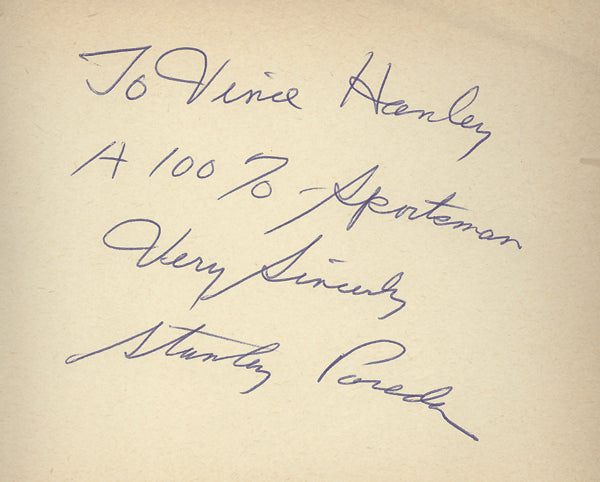 To Vince Hanley
A 100% - Sportsman
Very Sincerely
Stanley Poreda